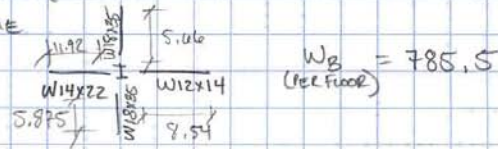 11.92 W18x35 5.66
W14x22 I W12x14
5.875 W18x35 8.54
WB = 785.5
(PER FLOOR)